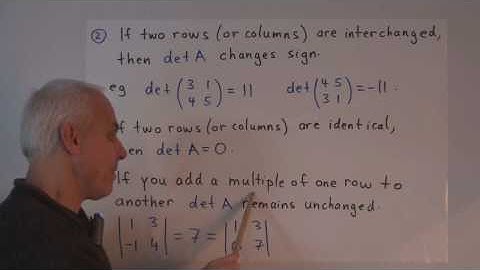 ② If two rows (or columns) are interchanged,
then det A changes sign.
eg det (3 1 = 11 det (4 5 = -11.
4 5) 3 1)
two rows (or columns) are identical,
det A = 0.
If you add a multiple of one row to
another det A remains unchanged.
| 1 3 | = 7 = | 1 3 |
| -1 4 | | 7 |